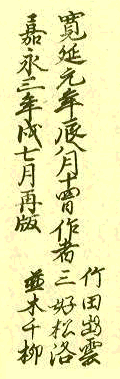 寛延元年辰八月十四日作者
竹田出雲
三好松洛
並木千柳
嘉永三年戌七月再版